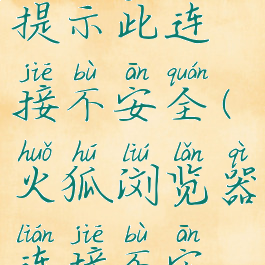 提示此连
jiē bù ān quán
接不安全(
huǒ hú liú lǎn qì
火狐浏览器
lián jiē bù ān
连接不安